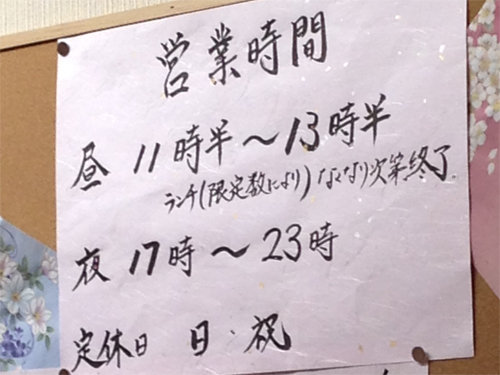 営業時間
昼 11時半～13時半
ランチ(限定数により)なくなり次第終了
夜 17時～23時
定休日 日・祝